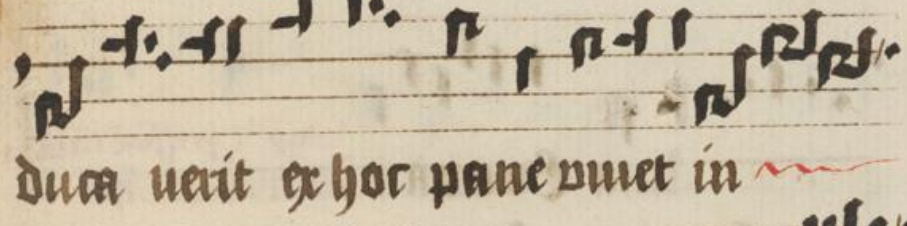 duca uerit ex hoc pane viuet in